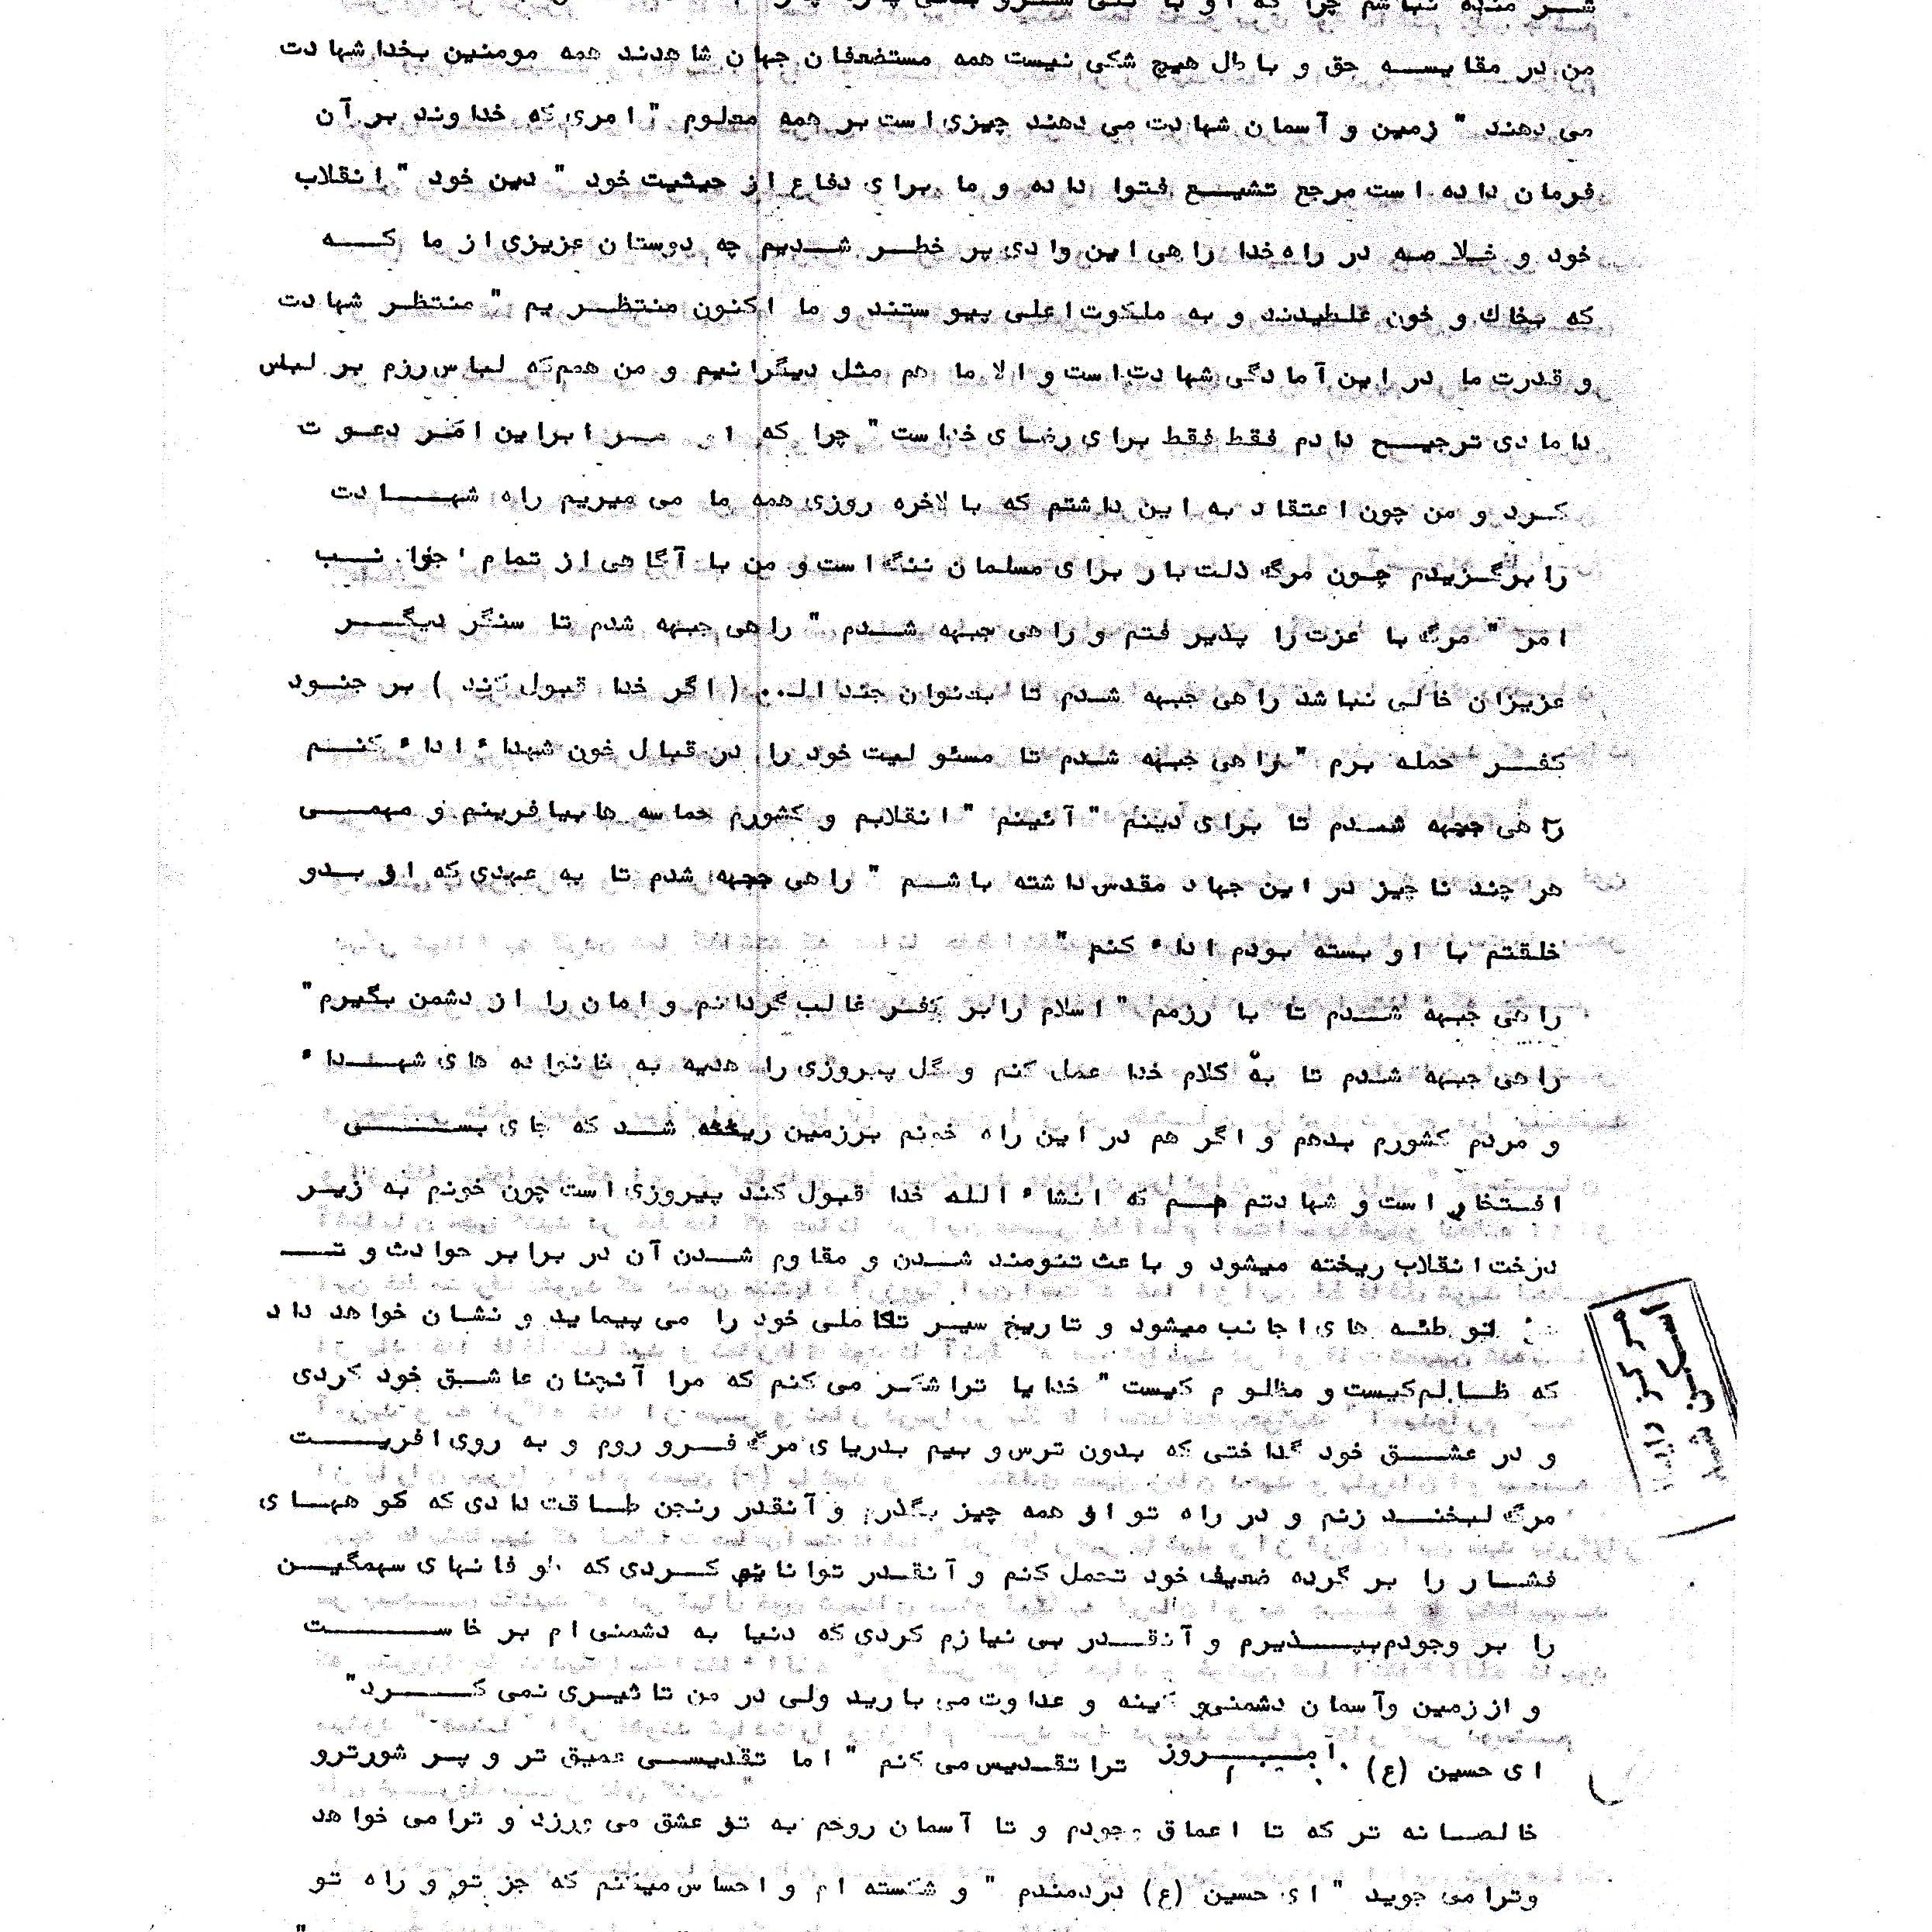 من در مقایسه حق و باطل هیچ شکی نیست همه مستضعفان جهان شاهدند همه مومنین بخدا شهادت
می دهند " زمین و آسمان شهادت می دهند چیزی است بر همه معلوم " امری که خداوند بر آن
فرمان داده است مرجع تشیع فتوا داده و ما برای دفاع از حیثیت خود " دین خود " انقلاب
خود و خلاصه در راه خدا راهی این وادی پر خطر شدیم چه دوستان عزیزی از ما که
که بخاک و خون غلطیدند و به ملکوت اعلی پیوستند و ما اکنون منتظریم " منتظر شهادت
و قدرت ما در این آمادگی شهادت است و الا ما هم مثل دیگرانیم و من هم که لباس رزم بر لباس
دامادی ترجیح دادم فقط فقط برای رضای خداست " چرا که او مرا براین امر دعوت
کرد و من چون اعتقاد به این داشتم که بالاخره روزی همه ما می میریم راه شهادت
را برگزیدم چون مرگ ذلت بار برای مسلمان ننگ است و من با آگاهی از تمام جوانب
امر " مرگ با عزت را پذیرفتم و راهی جبهه شدم " راهی جبهه شدم تا سنگر دیگر
عزیزان خالی نباشد راهی جبهه شدم تا بعنوان جند اله ( اگر خدا قبول کند ) بر جنود
کفر حمله برم " راهی جبهه شدم تا مسئولیت خود را در قبال خون شهداء اداء کنم
راهی جبهه شدم تا برای دینم " آئینم " انقلابم و کشورم حماسه ها بیافرینم و مهمی
هر چند ناچیز در این جهاد مقدس داشته باشم " راهی جبهه شدم تا به عهدی که از بدو
خلقتم با او بسته بودم اداء کنم "
راهی جبهه شدم تا با رزمم " اسلام را بر کفر غالب گردانم و امان را از دشمن بگیرم "
راهی جبهه شدم تا به کلام خدا عمل کنم و گل پیروزی را هدیه به خانواده های شهداء
و مردم کشورم بدهم و اگر هم در این راه خونم برزمین ریخته شد که جای بسی
افتخار است و شهادتم هم که انشاء الله خدا قبول کند پیروزی است چون خونم به زیر
درخت انقلاب ریخته میشود و باعث تنومند شدن و مقاوم شدن آن در برابر حوادث و تـ
توطئه های اجانب میشود و تاریخ سیر تکاملی خود را می پیماید و نشان خواهد داد
که ظالم کیست و مظلوم کیست " خدایا ترا شکر می کنم که مرا آنچنان عاشق خود کردی
و در عشق خود گداختی که بدون ترس و بیم بدریای مرگ فرو روم و به روی افریت
مرگ لبخند زنم و در راه تو از همه چیز بگذرم و آنقدر رنجن طاقت دادی که کوههای
فشار را بر گرده ضعیف خود تحمل کنم و آنقدر توانایم کردی که طوفانهای سهمگین
را بر وجودم بپذیرم و آنقدر بی نیازم کردی که دنیا به دشمنی ام بر خاست
و از زمین وآسمان دشمنی و کینه و عداوت می بارید ولی در من تاثیری نمی کرد "
ای حسین (ع) امروز ترا تقدیس می کنم " اما تقدیسی عمیق تر و پر شورترو
خالصانه تر که تا اعماق وجودم و تا آسمان روحم به تو عشق می ورزد و ترا می خواهد
وترا می جوید " ای حسین (ع) دردمندم " و شکسته ام و احساس میکنم که جز تو و راه تو
مرکز